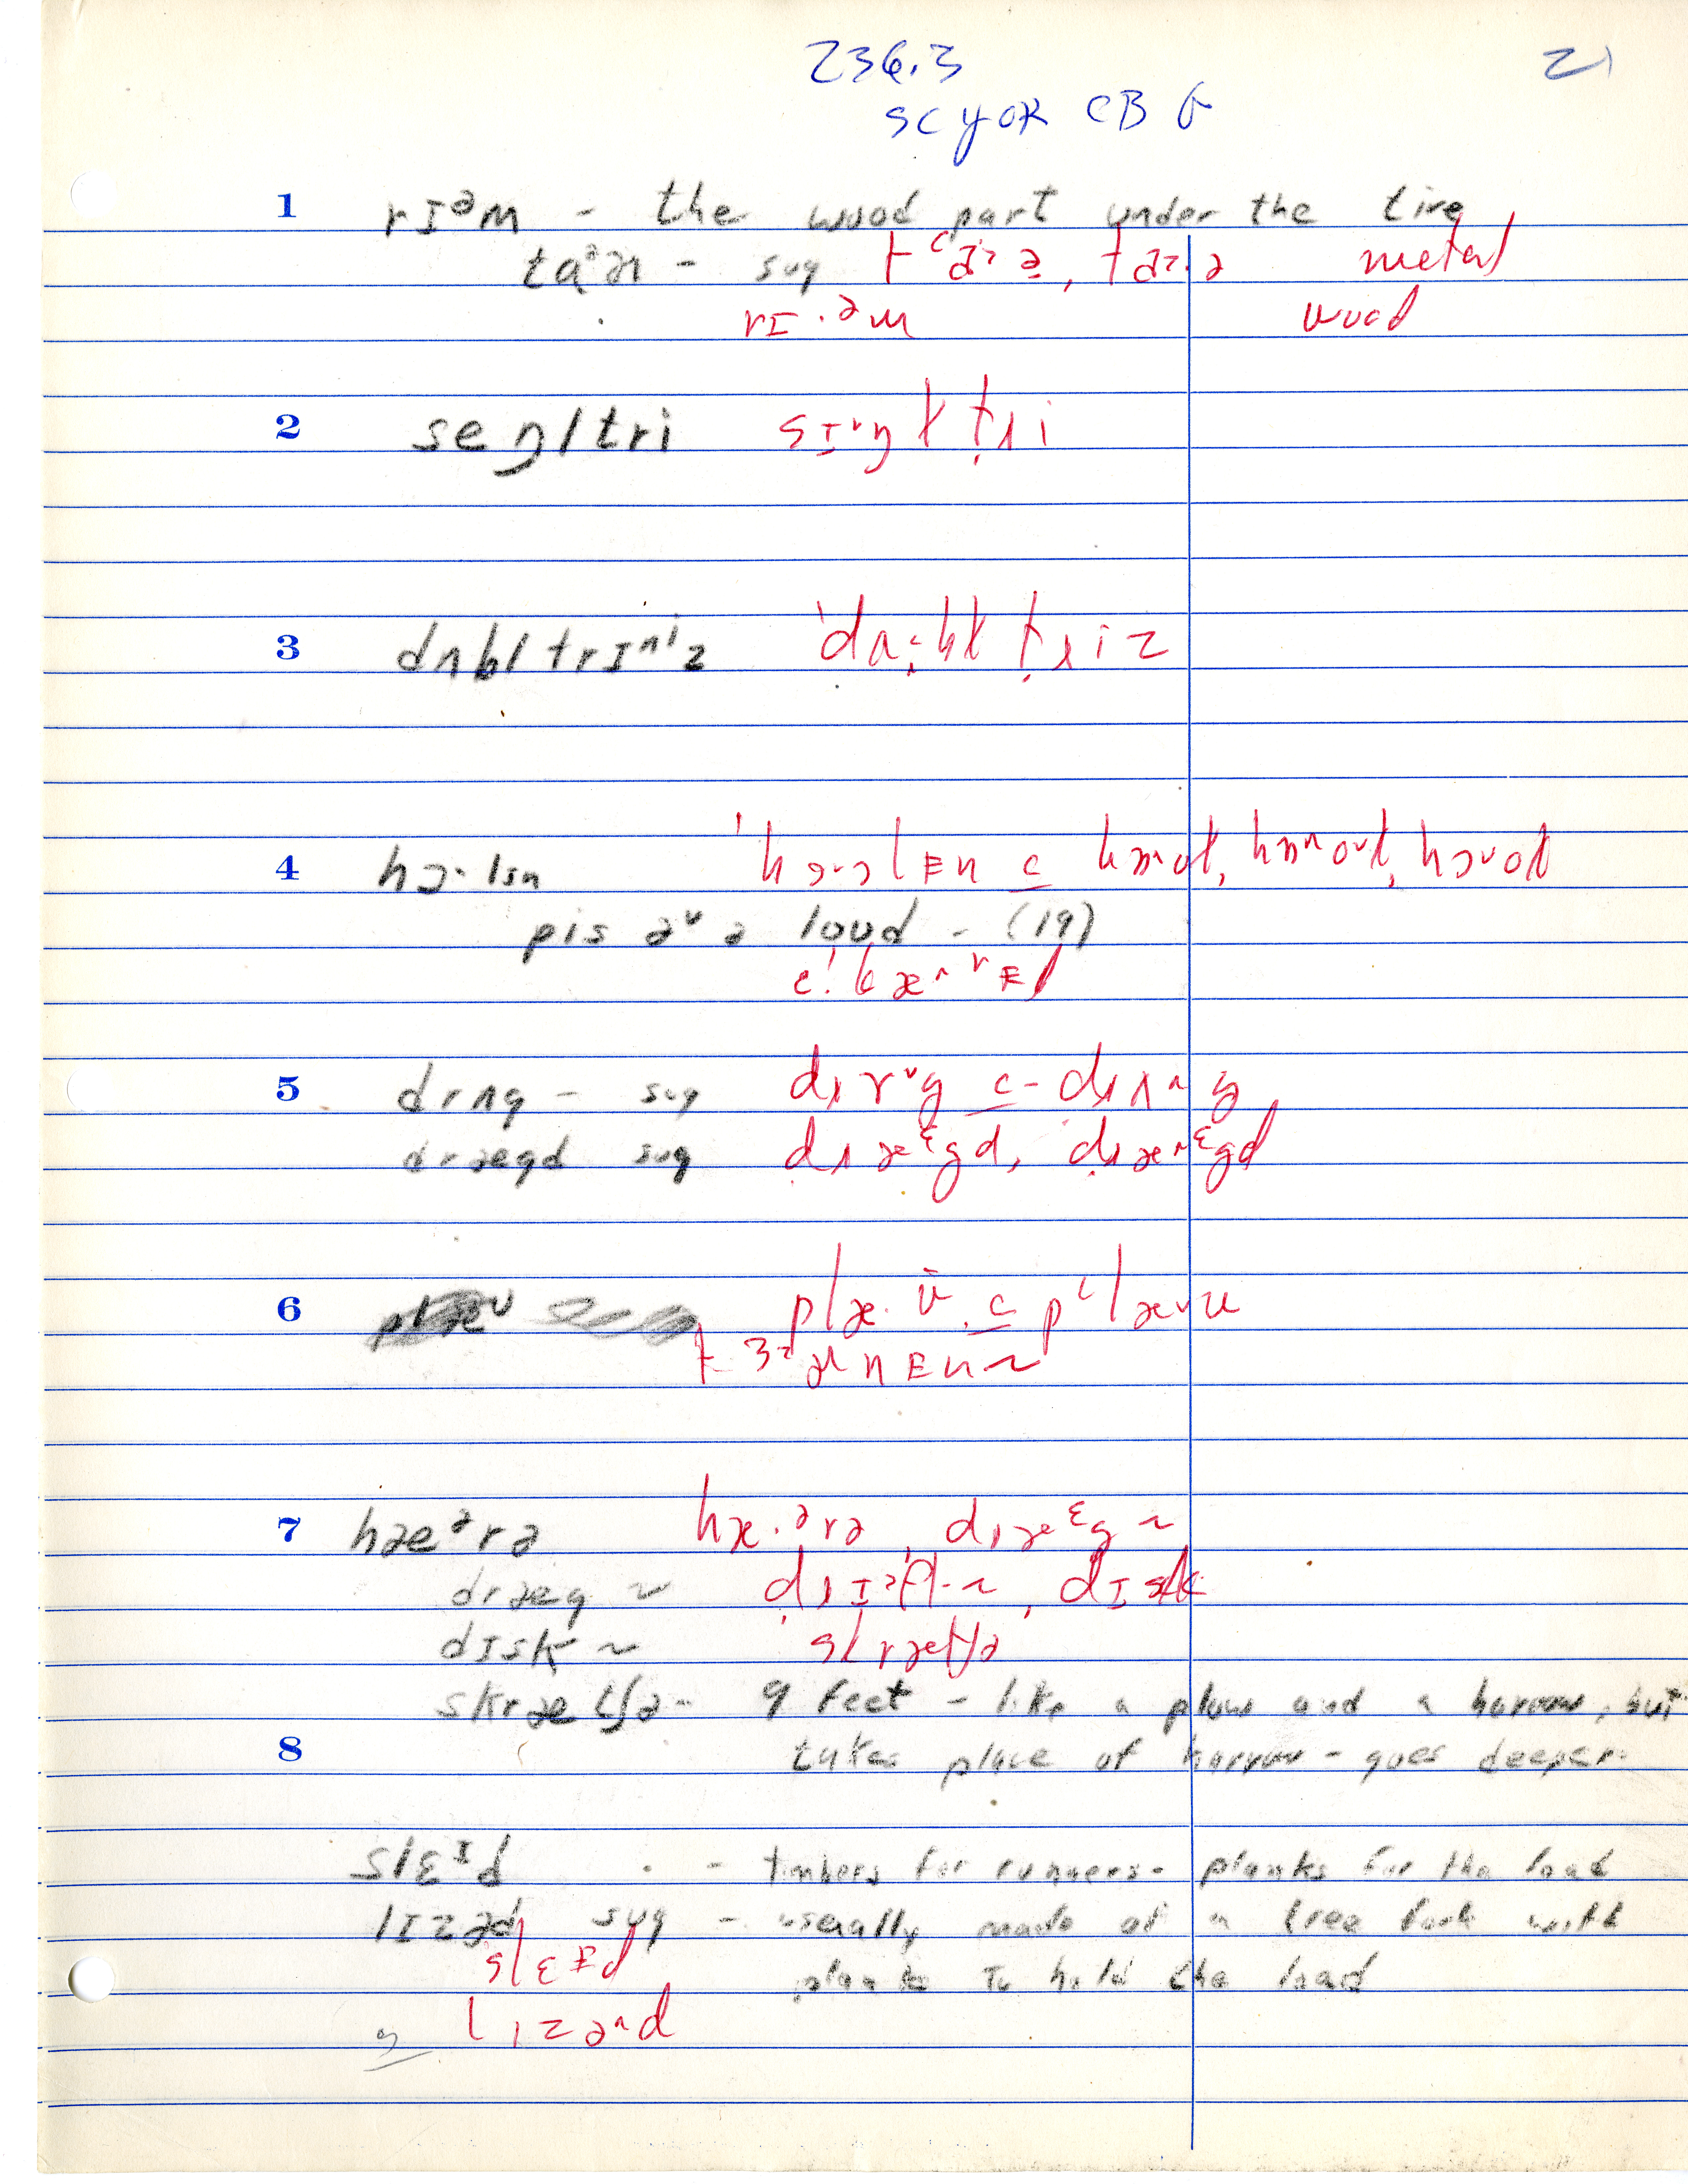 236.3 21
SC YOR CB G
1 rɪᵊm - the wood part under the tire
taᵊɚ - sug tᶜaɚə, taɚ.ə metal
rɪ.ᵊm wood
2 seŋltri sɪ˅ŋɫ tɹi
3 dʌbl trɪ^ⁱz 'dʌ:bɫ tɹiz
4 hɔ·lsn 'hɔ·əlɪn c
pis ə˅ ə loud - (19)
5 drʌg - sug dɹɤ˅g c dɹʌ^g
drægd sug dɹæᵋgd, dɹæ^ᵋgd
6 plæʊ plæ.ʊ c pᶜlæ˅u
7 hæᵊrə hæ.ᵊrə, dɹæᵋg ~
dræg ~ dɪsk
dɪsk ~ skrætʃə
skrætʃə - 9 feet - like a plow and a harrow, but
8 takes place of harrow - goes deeper.
slɛᶦd - timbers for runners - planks for the load
lɪzəd sug - usually made of a tree fork with
slɛɪd planks to hold the load
lɪzə^d